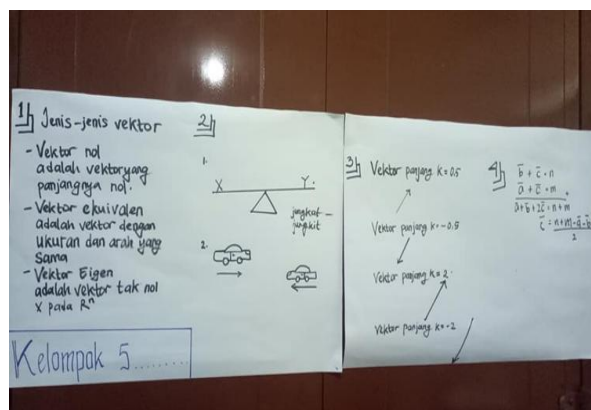 1) Jenis-jenis vektor
- Vektor nol
adalah vektor yang
panjangnya nol.
- Vektor ekuivalen
adalah vektor dengan
ukuran dan arah yang
sama
- Vektor Eigen
adalah vektor tak nol
X pada Rⁿ
Kelompok 5.........
2)
1.
X Y.
jungkat-
jungkit
2.
3) Vektor panjang k = 0.5
Vektor panjang k = -0.5
Vektor panjang k = 2
Vektor panjang k = -2
4) b̄ + c̄ = n
ā + c̄ = m
+
ā + b̄ + 2c̄ = n + m
c̄ = n + m - ā - b̄
2